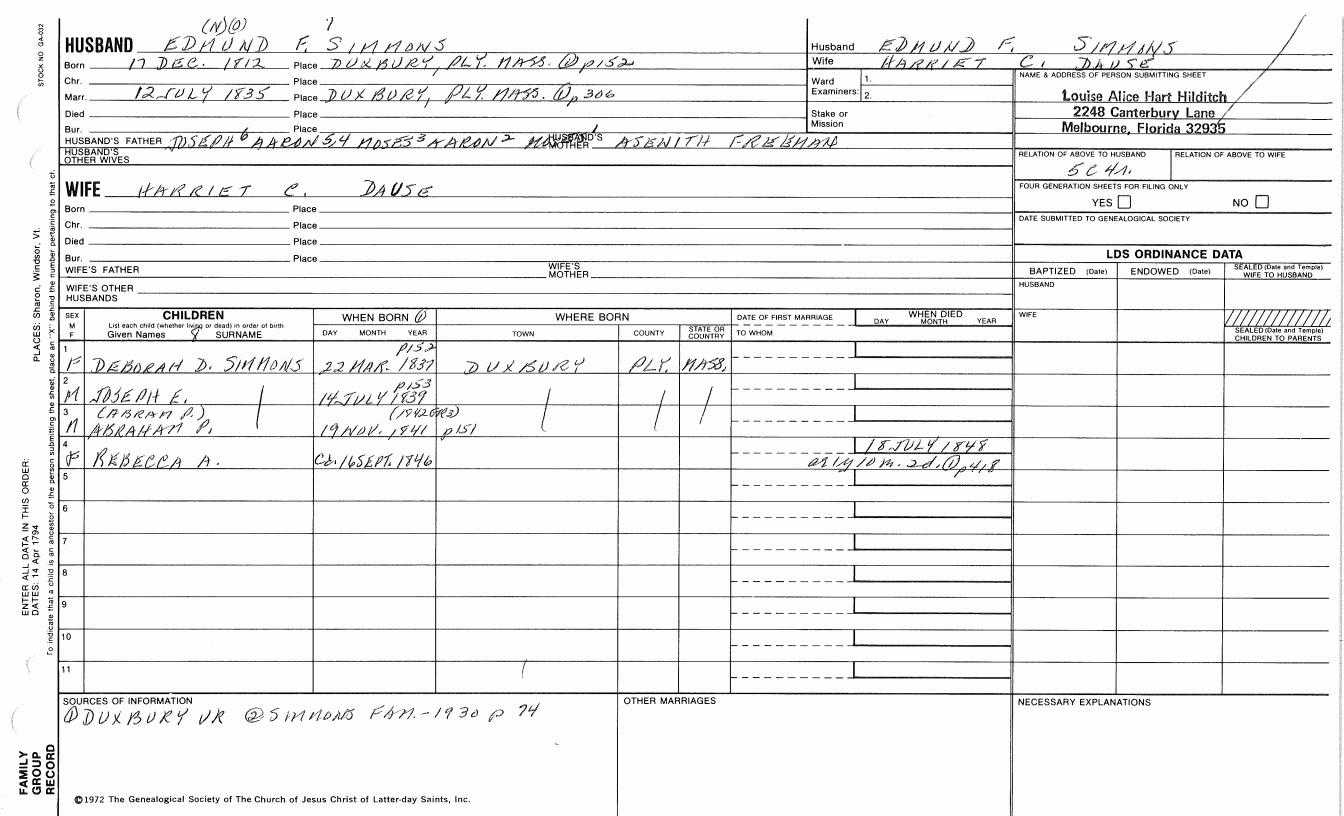 (N)(O) 7
HUSBAND EDMUND F. SIMMONS
Born 17 DEC. 1812 Place DUXBURY, PLY. MASS. ① p152
Chr. Place
Marr. 12 JULY 1835 Place DUXBURY, PLY. MASS. ① p306
Died Place
Bur. Place
HUSBAND'S FATHER JOSEPH6 AARON5,4 MOSES3 AARON2 MOSES1 HUSBAND'S MOTHER ASENITH FREEMAN
HUSBAND'S OTHER WIVES
Husband EDMUND F. SIMMONS
Wife HARRIET C. DAUSE
Ward Examiners: 1.
2.
Stake or Mission
NAME & ADDRESS OF PERSON SUBMITTING SHEET
Louise Alice Hart Hilditch
2248 Canterbury Lane
Melbourne, Florida 32935
RELATION OF ABOVE TO HUSBAND RELATION OF ABOVE TO WIFE
5C4r.
FOUR GENERATION SHEETS FOR FILING ONLY
YES NO
DATE SUBMITTED TO GENEALOGICAL SOCIETY
WIFE HARRIET C. DAUSE
Born Place
Chr. Place
Died Place
Bur. Place
WIFE'S FATHER WIFE'S MOTHER
WIFE'S OTHER HUSBANDS
LDS ORDINANCE DATA
BAPTIZED (Date) ENDOWED (Date) SEALED (Date and Temple) WIFE TO HUSBAND
HUSBAND
WIFE
SEALED (Date and Temple) CHILDREN TO PARENTS
SEX M F CHILDREN WHEN BORN ① WHERE BORN DATE OF FIRST MARRIAGE WHEN DIED
List each child (whether living or dead) in order of birth
Given Names 8 SURNAME DAY MONTH YEAR TOWN COUNTY STATE OR COUNTRY TO WHOM DAY MONTH YEAR
p152
1 F DEBORAH D. SIMMONS 22 MAR. 1837 DUXBURY PLY. MASS.
p153
2 M JOSEPH E. 14 JULY 1839
3 (ABRAM P.) (1942GR3)
M ABRAHAM P. 19 NOV. 1841 p151
4 18 JULY 1848
F REBECCA A. Cd. 16 SEPT. 1846 ae 1y 10m. 2d. ① p418
5
6
7
8
9
10
11
SOURCES OF INFORMATION OTHER MARRIAGES NECESSARY EXPLANATIONS
① DUXBURY VR ② SIMMONS FAM.-1930 p 74
©1972 The Genealogical Society of The Church of Jesus Christ of Latter-day Saints, Inc.
STOCK NO GA-032
PLACES: Sharon, Windsor, Vt.
ENTER ALL DATA IN THIS ORDER:
DATES: 14 Apr 1794
To indicate that a child is an ancestor of the person submitting the sheet, place an "X" behind the number pertaining to that ch
FAMILY
GROUP
RECORD